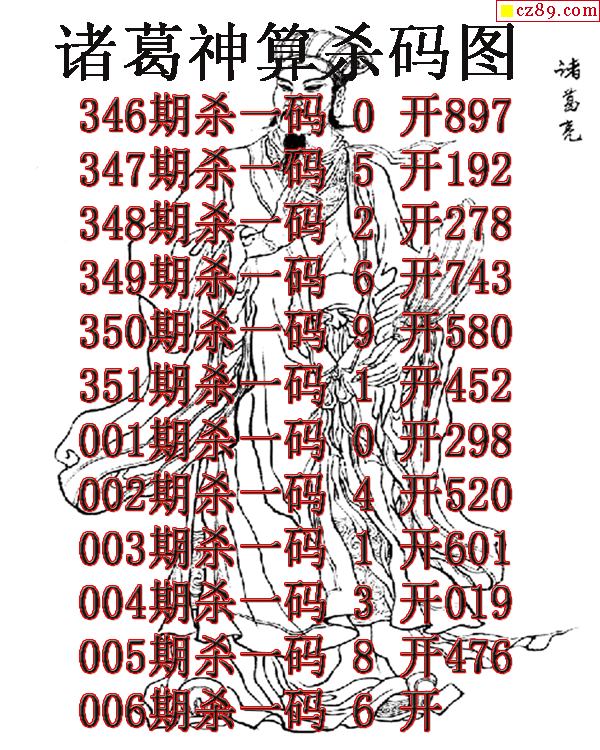 cz89.com
诸葛神算杀码图
诸葛亮
346期杀一码 0 开897
347期杀一码 5 开192
348期杀一码 2 开278
349期杀一码 6 开743
350期杀一码 9 开580
351期杀一码 1 开452
001期杀一码 0 开298
002期杀一码 4 开520
003期杀一码 1 开601
004期杀一码 3 开019
005期杀一码 8 开476
006期杀一码 6 开